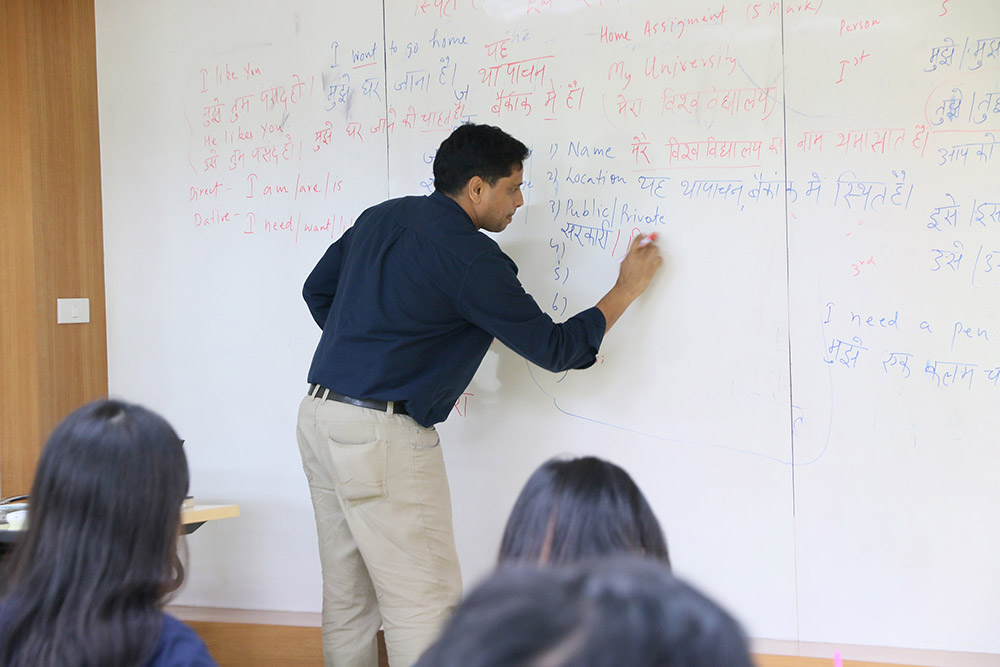 I like you
मुझे तुम पसंद हो।
He likes you
उसे तुम पसंद हो।
Direct - I am/are/is
Dative - I need/want/
I want to go home
मुझे घर जाना है।
मुझे घर जाने की चाहत है
यह
थापाचन
बैकांक में है।
Home Assigment (5 Mark)
My University
मेरा विश्वविद्यालय
1) Name मेरे विश्वविद्यालय का नाम थमासात है।
2) Location यह थापाचन, बैकांक में स्थित है।
3) Public/Private
सरकारी/
4)
5)
6)
Person
Ist
3rd
S
मुझे/मुझ
तुझे/तुझ
आपको
इसे/इस
उसे/उ
I need a pen
मुझे एक कलम च